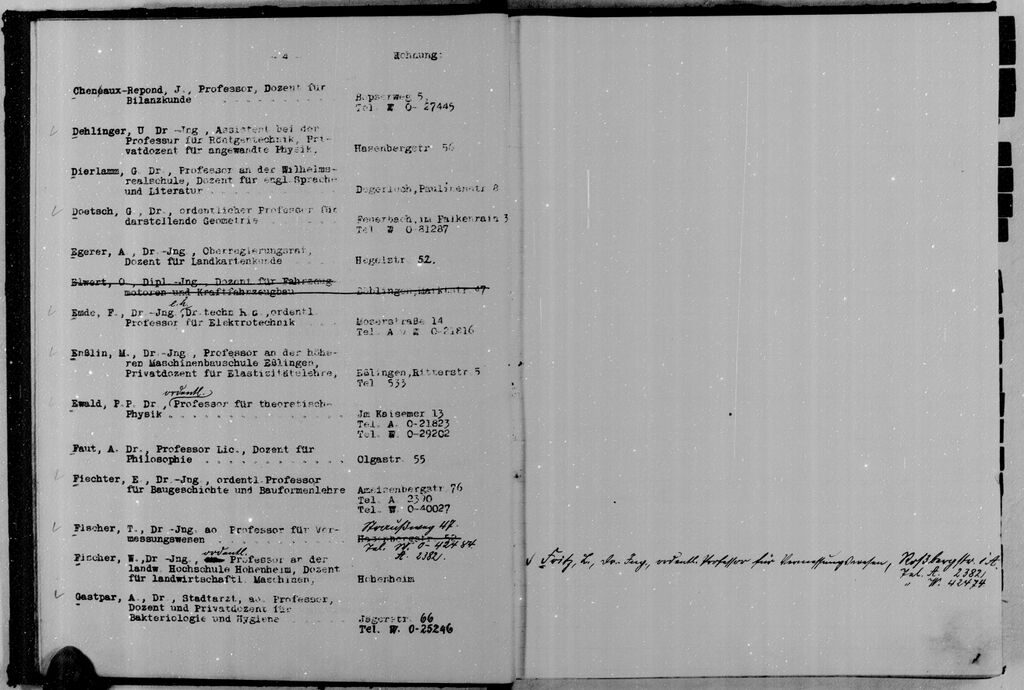 - 4 -
Wohnung:
Cheneaux-Repond, J., Professor, Dozent für
Bilanzkunde - - - - - - -
Hopserweg 5,
Tel. W 0- 27445
Dehlinger, U Dr -Jng , Assistent bei der
Professur für Röntgentechnik, Pri-
vatdozent für angewandte Physik,
Hasenbergstr 56
Dierlamm, G. Dr , Professor an der Wilhelms-
realschule, Dozent für engl.Sprache
und Literatur
Degerloch,Paulinenstr 8
Doetsch, G , Dr., ordentlicher Professor für
darstellende Geometrie
Feuerbach,im Falkenrain 3
Tel W 0-81287
Egerer, A , Dr -Jng , Oberregierungsrat,
Dozent für Landkartenkunde
Hegelstr 52.
Elwert, O , Dipl -Jng , Dozent für Fahrzeug-
motoren und Kraftfahrzeugbau
Böblingen,Marktstr 47
e.h.
Emde, F., Dr -Jng ,Dr.techn h.c ,ordentl.
Professor für Elektrotechnik
Mozerstraße 14
Tel A u W 0-21816
Enßlin, M., Dr -Jng , Professor an der höhe-
ren Maschinenbauschule Eßlingen,
Privatdozent für Elastizitätslehre,
Eßlingen,Ritterstr 5
Tel 533
ordentl.
Ewald, P.P. Dr ,Professor für theoretisch-
Physik . . . . . . . . .
Jm Kaisemer 13
Tel. A. 0-21823
Tel. W. 0-29202
Faut, A. Dr., Professor Lic., Dozent für
Philosophie . . . . . . . . .
Olgastr 55
Fiechter, E , Dr.-Jng , ordentl.Professor
für Baugeschichte und Bauformenlehre
Ameisenbergstr 76
Tel. A 2390
Tel. W 0-40027
Fischer, T., Dr -Jng. ao Professor für Ver-
messungswesen
47.
Tel. W. 0-42484
A. 2382.
ordentl.
Fischer, W.,Dr -Jng , Professor an der
landw. Hochschule Hohenheim, Dozent
für landwirtschaftl Maschinen,
Hohenheim
Gastpar, A , Dr , Stadtarzt, ao. Professor,
Dozent und Privatdozent für
Bakteriologie und Hygiene
Jägerstr 66
Tel. W. 0-25246
Fritz, L., Dr.-Ing., ordentl. Professor für Vermessungswesen, Roßbergstr.
Tel. A. 2382,
" W. 42474